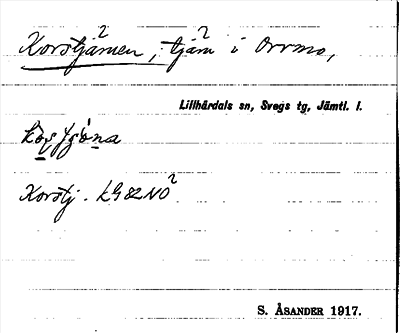 Korstjärnen, tjärn i Orrmo,
Lillhärdals sn, Svegs tg, Jämtl. l.
Korstj. LG82NO2
S. ÅSANDER 1917.